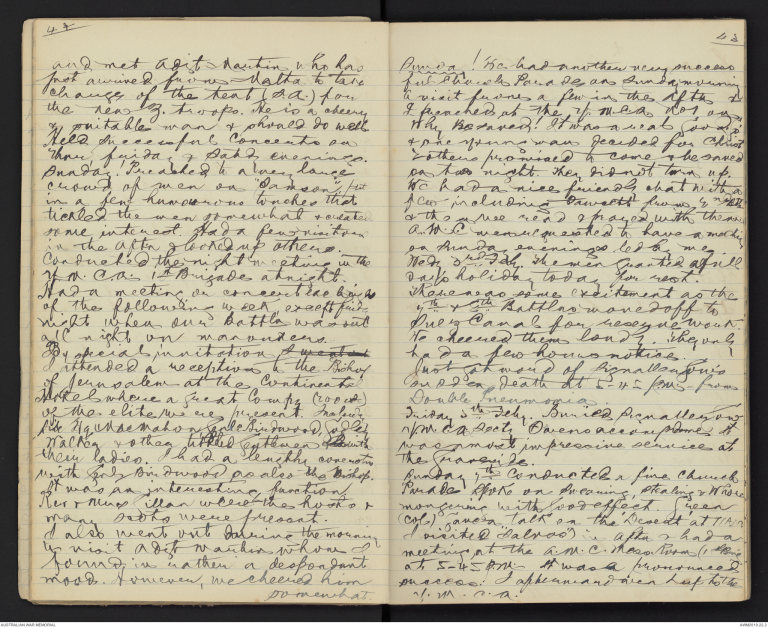 42
and met Adjt. Hawkin who has
just arrived from Malta to take
charge of the tent (S.A.) for
the new Z. troops. He is a cheery
& suitable man & should do well
Held successful concerts on
Thur, Friday & Satd evenings.
Sunday. Preached to a very large
crowd of men on "Samson" put
in a few humorous touches that
tickled the men somewhat & created
some interest. Had a few visitors
in the aftn & looked up others.
Conducted the night meeting in the
Y.M.C.A. 1st Brigade at night.
Had a meeting or concert each night
of the following week except
night when our Battln was out
all night on manouvers.
By special invitation I went
I attended a reception to the Bishop
of Jerusalem at the Continental
Hotel where a great Compy (200)
of the elite were present.
Sir Henry MacMahon, Genl Birdwood,
& other titled gentlemen with
their ladies. I had a lengthy conversation
with Genl Birdwood as also the Bishop.
It was an interesting function
were the hosts &
many were present.
I also went out during the morning
to visit Adjt Hawkin whom I
found in rather a despondent
mood. However, we cheered him
somewhat.
43
Sunda! We had another very success
ful Church Parade on Sunday morning
A visit from a few in the aftn &
I preached at the Y.M.C.A. No 1 on
"Why Be saved"! It was a real
& one young man decided for Christ
2 others promised to come & be saved
on the night. They did not turn up.
We had a nice friendly chat with a
few including from
& the nurse read & prayed with them.
A.M.C. men requested to have a meeting
on Sunday evenings led by me.
Wedy 3rd Feby. The men granted a full
day's holiday today for rest.
There was some excitement as the
7th & 8th Battlns moved off to
Suez Canal for reserve work.
We cheered them loudly. They only
had a few hours notice.
Just at word of Signaller
sudden death at 5-45 pm from
Double Pneumonia.
Friday 5th Feby. Buried Signaller
Y.M.C.A Secty Owens accompanied. It
was a most impressive service at
the graveside.
Sunday 7th Conducted a fine Church
Parade. Spoke on Swearing, stealing & Whore
mongering with good effect. Green
(Col) gave a talk on the Desert at
I visited in aftn & had a
meeting at the A.M.C.
at 5-45 P.M. It was a pronounced
success. I afterward gave help to the
Y.M.C.A.
AUSTRALIAN WAR MEMORIAL
AWM2019.22.3